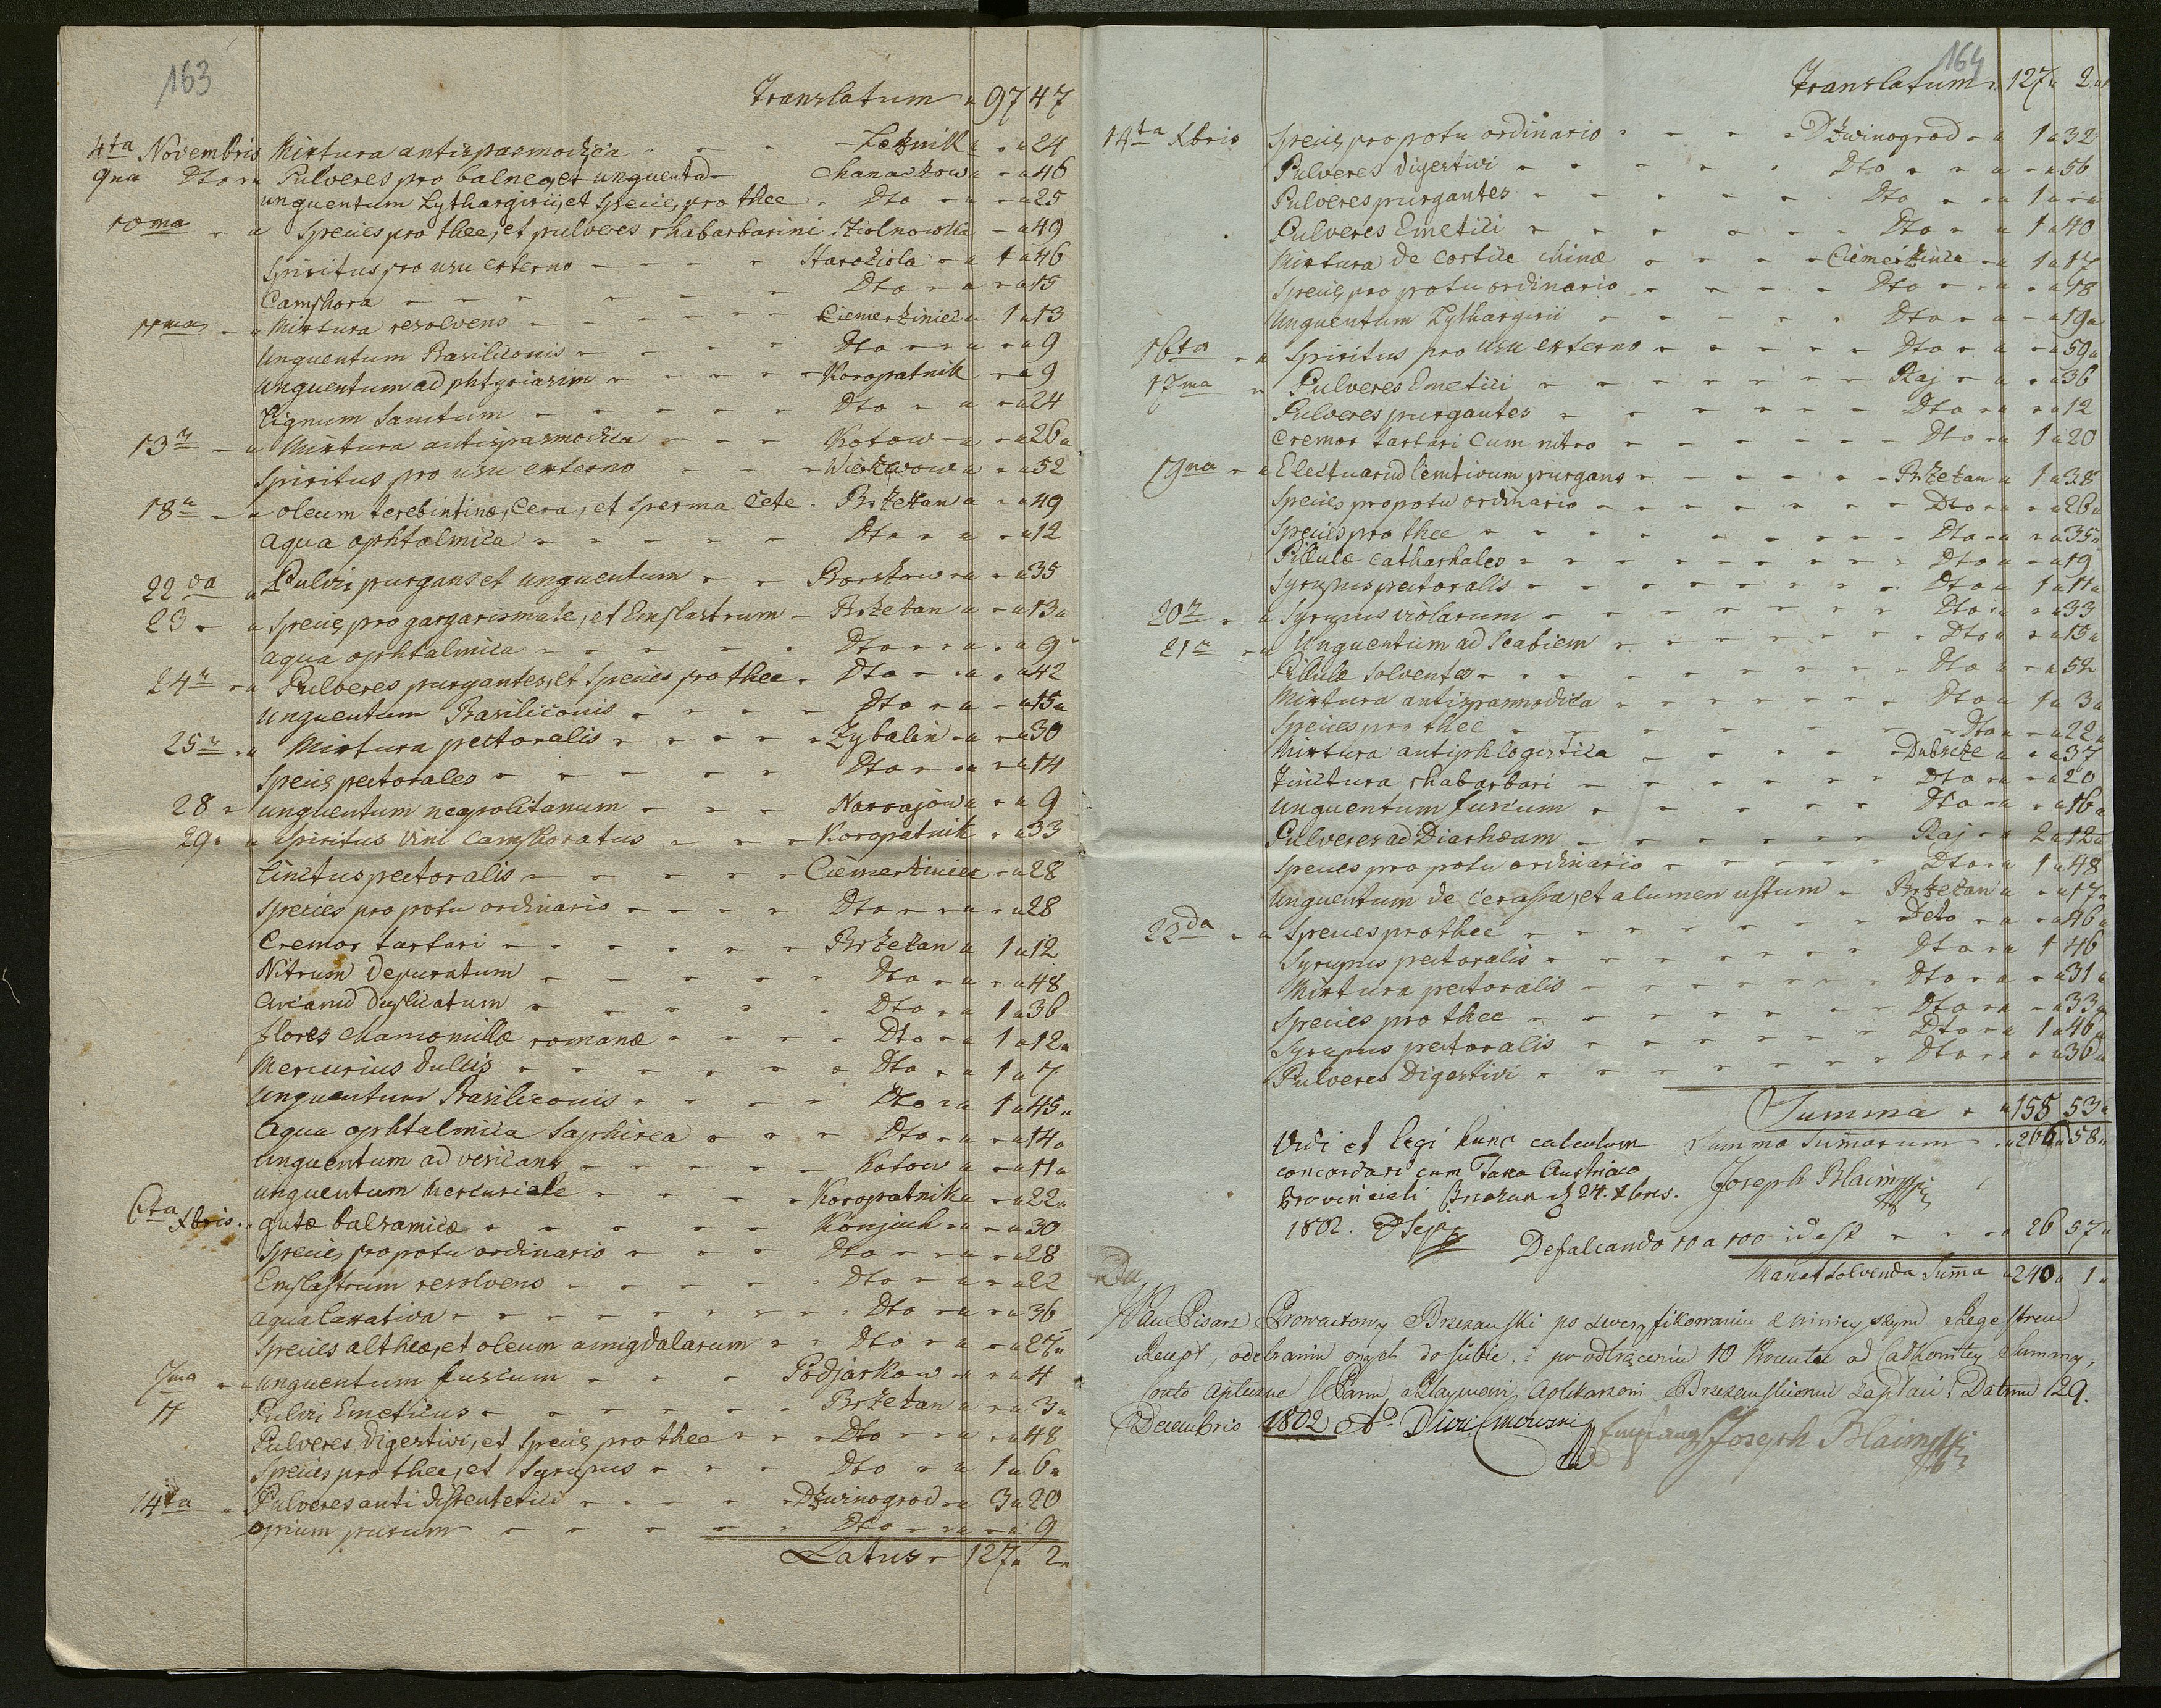 163
Translatum " 97 47
4ta Novembris Mixtura antispasmodica - - - Leśnik " - " 24
9na Dto " Pulveres pro balneo, et unguentū - Chanaczow " - " 46
unguentum Lythargirii, et Species pro thee - Dto - " - " 25
10ma - " Species pro thee, et pulveres rhabarbarini - " 49
Spiritus pro usu externo - - - - " 1 " 46
Camphora - - - - - - Dto - " - " 15
11ma - " Mixtura resolvens - - - - - Ciemerżiniec " 1 " 13
Unguentum Basiliconis - - - - Dto - - " - " 9
Unguentum ad phtyriasim - - - - Koropatnik - " 9
Lignum Sanctum - - - - - Dto - " - " 24
13a - " Mixtura antispasmodica - - - Kotow - " - " 26 "
Spiritus pro usu externo - - - " - " 52
18a - " oleum terebintinæ, Cera, et Sperma Cete - Brżeżan " - " 49
aqua ophtalmica - - - - - Dto - " - " 12
22da " Pulvis purgans et unguentum - - " - " 35
23 - " Species pro gargarismate, et Emplastrum - Brżeżan " - " 13 "
aqua ophtalmica - - - - - Dto - - " - " 9
24a - " Pulveres purgantes, et Species pro thee - Dto - " - " 42
Unguentum Basiliconis - - - - Dto - " - " 15 "
25a - " Mixtura pectoralis - - - - - " - " 30
Species pectorales - - - - - Dto - " - " 14
28 - unguentum neapolitanum - - - Narajow " - " 9
29 - " Spiritus Vini Camphoratus - - - Koropatnik - " 33
Linctus pectoralis - - - - - Ciemerżiniec - " 28
Species pro potu ordinario - - - - Dto - - " - " 28
Cremor tartari - - - - - - Brżeżan " 1 " 12
Nitrum Depuratum - - - - - Dto - " - " 48
Arcanū Duplicatum - - - - - Dto - " 1 " 36
flores Chamomillæ romanæ - - - - Dto - " 1 " 12 "
Mercurius dulcis - - - - - - Dto - " 1 " 7
Unguentum Basiliconis - - - - Dto - " 1 " 45 "
Aqua ophtalmica Saphirea - - - Dto - " - " 14 "
Unguentum ad vesicans - - - - - Kotow " - " 11 "
unguentum mercuriale - - - - Koropatnik " - " 22 "
6ta Xbris - " gutæ balsamicæ - - - - - - Koniuch - " - " 30
Species pro potu ordinario - - - Dto - - " - " 28
Emplastrum resolvens - - - - - Dto - " - " 22
aqua laxativa - - - - - - - Dto - " - " 36
Species altheæ, et oleum amigdalarum - - Dto - " - " 27 "
7ma - " unguentum fuscum - - - Podjarkow - " - " 4
11 Pulvis Emeticus - - - - - - Brżeżan " - " 3 "
Pulveres digestivi, et Species pro thee - - - Dto - " - " 48
Species pro thee, et Syrupus - - - Dto - " 1 " 6 "
14ta " Pulveres anti dissenterici - - - - - Dżwinogrod - " 3 " 20
opium purum - - - - - - Dto - - " - " 9
Latus - 127 " 2 "
164
Translatum " 127 " 2 "
14ta Xbris Species pro potu ordinario - - - - Dżwinogrod - " 1 " 32
Pulveres digestivi - - - - - - Dto - - " - " 56
Pulveres purgantes - - - - - - Dto - - " 1 " - "
Pulveres Emetici - - - - - - - Dto - " 1 " 40
Mixtura de Cortice chinæ - - - - Ciemerżince - " 1 " 17
Species pro potu ordinario - - - - Dto - - " - " 18
Unguentum Lythargirii - - - - - Dto - " - " 19 "
16ta - " Spiritus pro usu externo - - - - - Dto - " - " 59 "
17ma " Pulveres Emetici - - - - - - - Raj - " - " 36
Pulveres purgantes - - - - - - - Dto - " - " 12
Cremor tartari Cum nitro - - - - - - Dto - " 1 " 20
19na - " Electuariū lenitivum purgans - - - - - Brżeżan " 1 " 38
Species pro potu ordinario - - - - - - - Dto - " - " 26 "
Species pro thee - - - - - - - - - Dto - " - " 35 "
Pillulæ Catharhales - - - - - - - - Dto " - " 19
Syrupus pectoralis - - - - - - - - Dto " 1 " 11 "
20a - " Syrupus violarum - - - - - - - Dto " - " 33
21a - " Unguentum ad Scabiem - - - - - - - Dto " - " 15 "
Pillulæ Solventes - - - - - - - - Dto " - " 52
Mixtura antispasmodica - - - - - - Dto " 1 " 3 "
Species pro thee - - - - - - - - Dto " - " 22 "
Mixtura antiphlogistica - - - - - " - " 37
tinctura rhabarbari - - - - - - Dto - " - " 20
Unguentum fuscum - - - - - - Dto - " - " 16 "
Pulveres ad Diarhæam - - - - - - Raj - " 2 " 12 "
Species pro potu ordinario - - - - - Dto - " 1 " 48
Unguentum de Cerussa, et alumen ustum - Brżeżan " - " 17 "
22da - " Species pro thee - - - - - - - - Deto - " - " 46 "
Syrupus pectoralis - - - - - - - Dto - " 1 46
Mixtura pectoralis - - - - - - - Dto - " - " 31 "
Species pro thee - - - - - - - - Dto - " - " 33 "
Syrupus pectoralis - - - - - - - Dto - " 1 " 46 "
Pulveres Digestivi - - - - - - - - Dto - " - " 36 "
Summa - " 158 53 "
Vidi et legi hunc calculum Summa Summarum - " 266 " 58 "
concordari cum Taxa Austriaco Joseph Blaimski
Provinciali Brzezan d 24. Xbris.
1802. Defalcando 10 a 100 id est - - - " 26 57 "
Manet solvenda Summa " 240 " 1 "
Pan Pisarz Prowentowy Brzezanski po zweryfikowaniu Regestrem
Recept, odebraniu onych do siebie, i po odtrąceniu 10 Procentu od całkowitey Summy,
Panu Aptekarzowi Brzezanskiemu zapłaci. Datum 29.
Decembris 1802
Empfang Joseph Blaimski